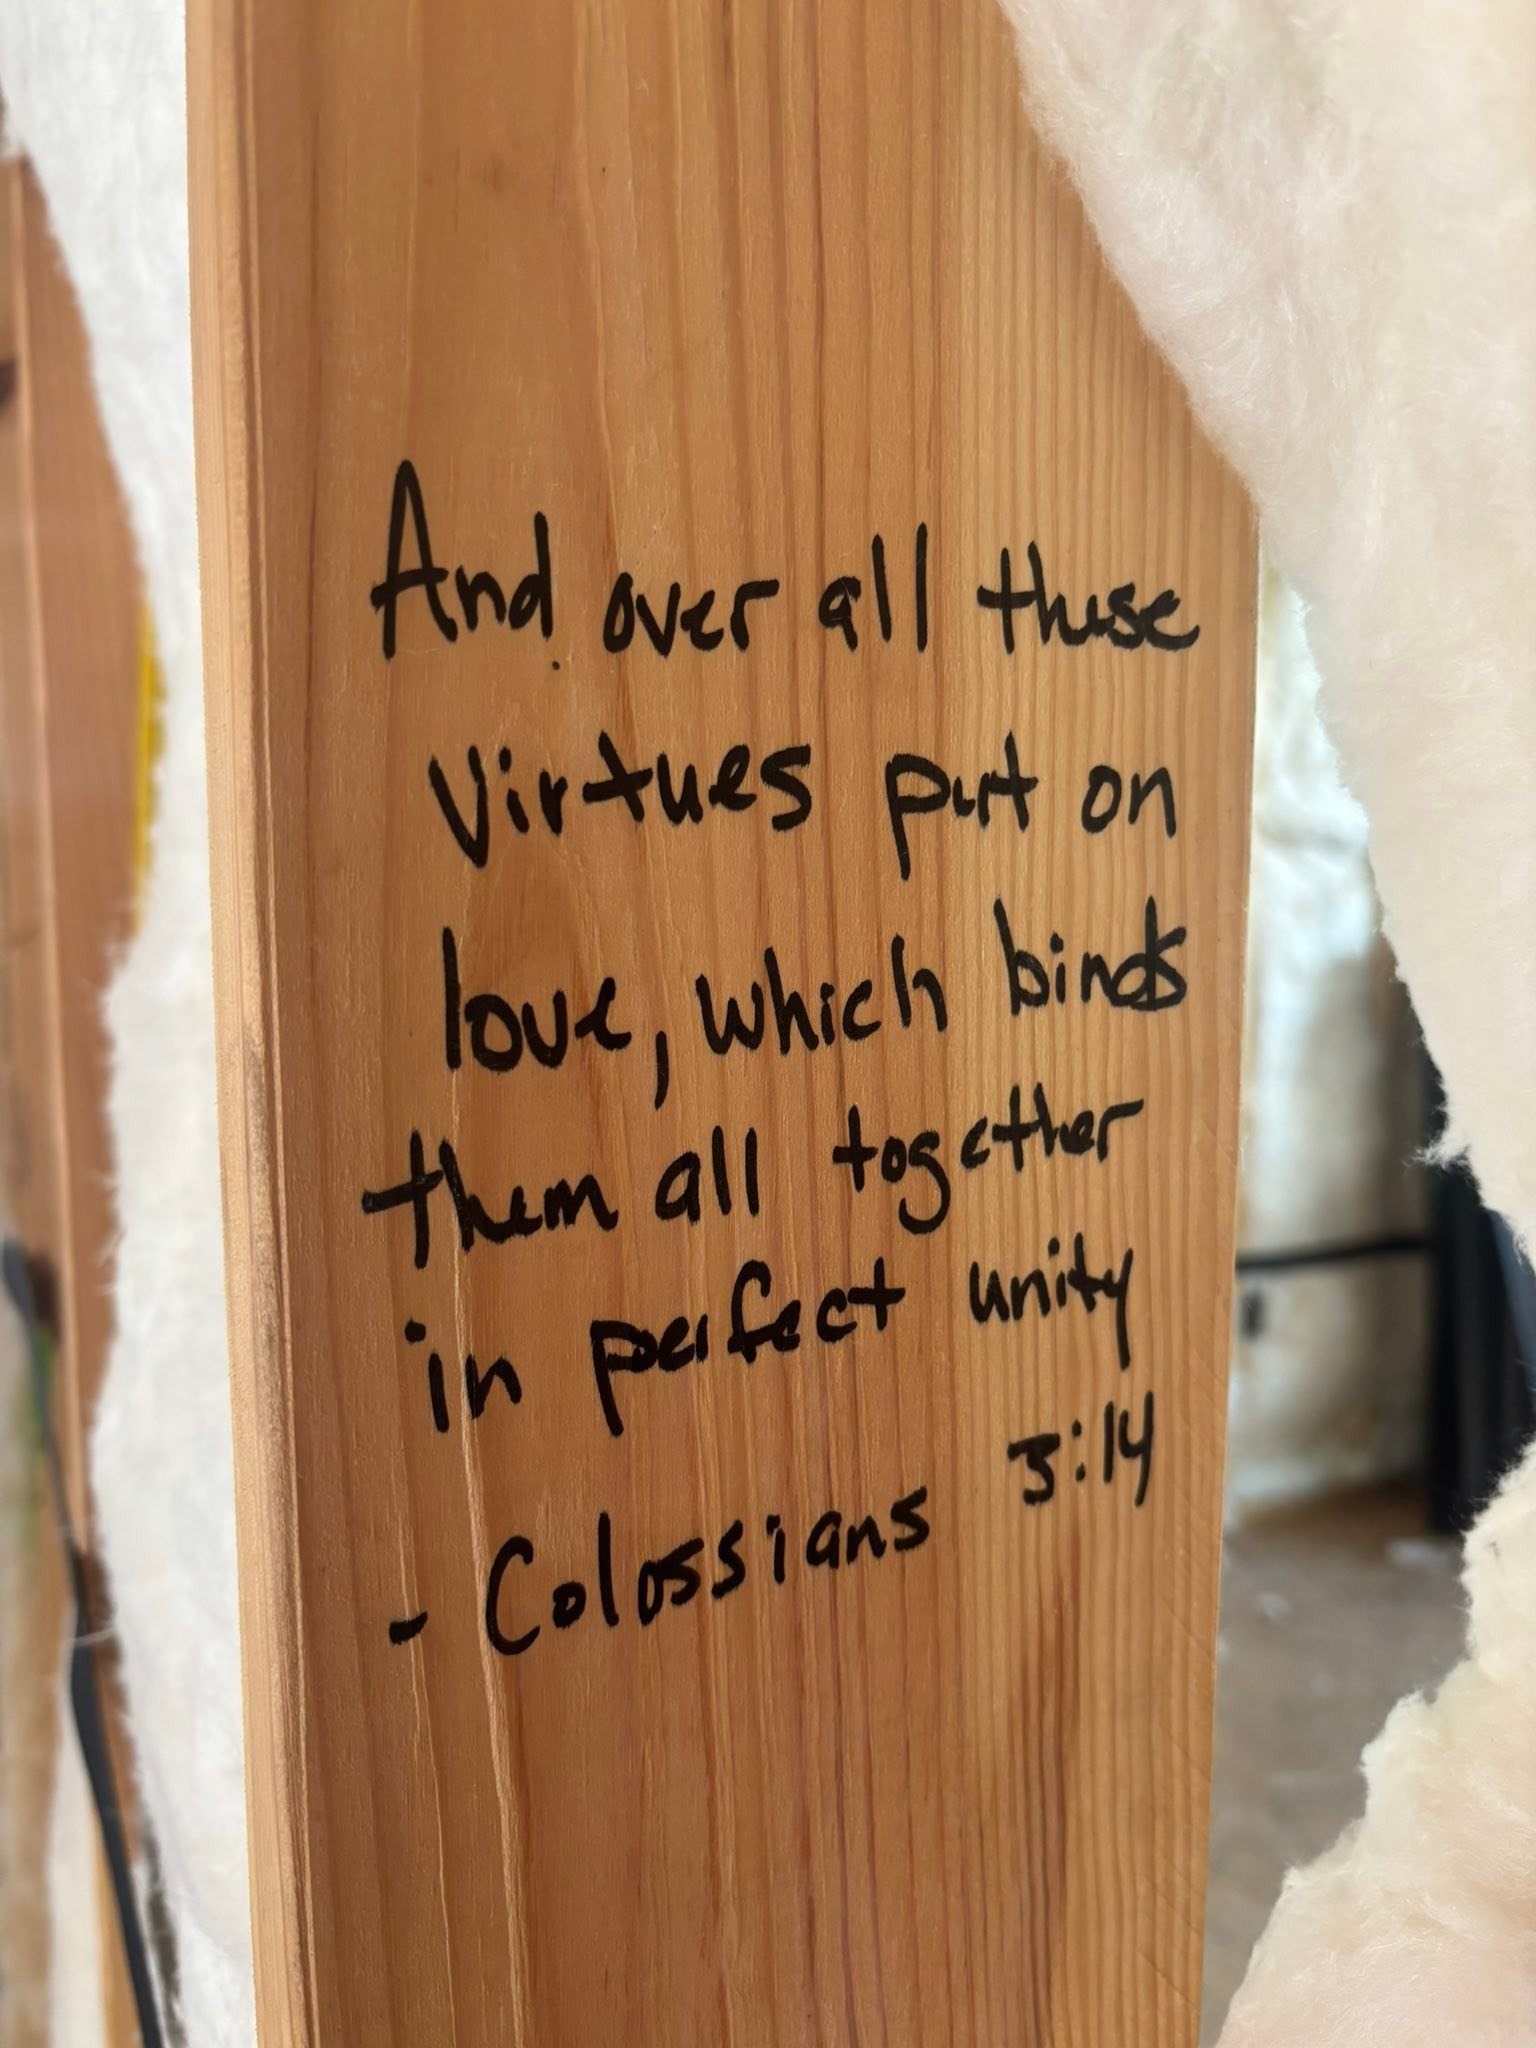 And over all these
Virtues put on
love, which binds
them all together
in perfect unity
- Colossians 3:14